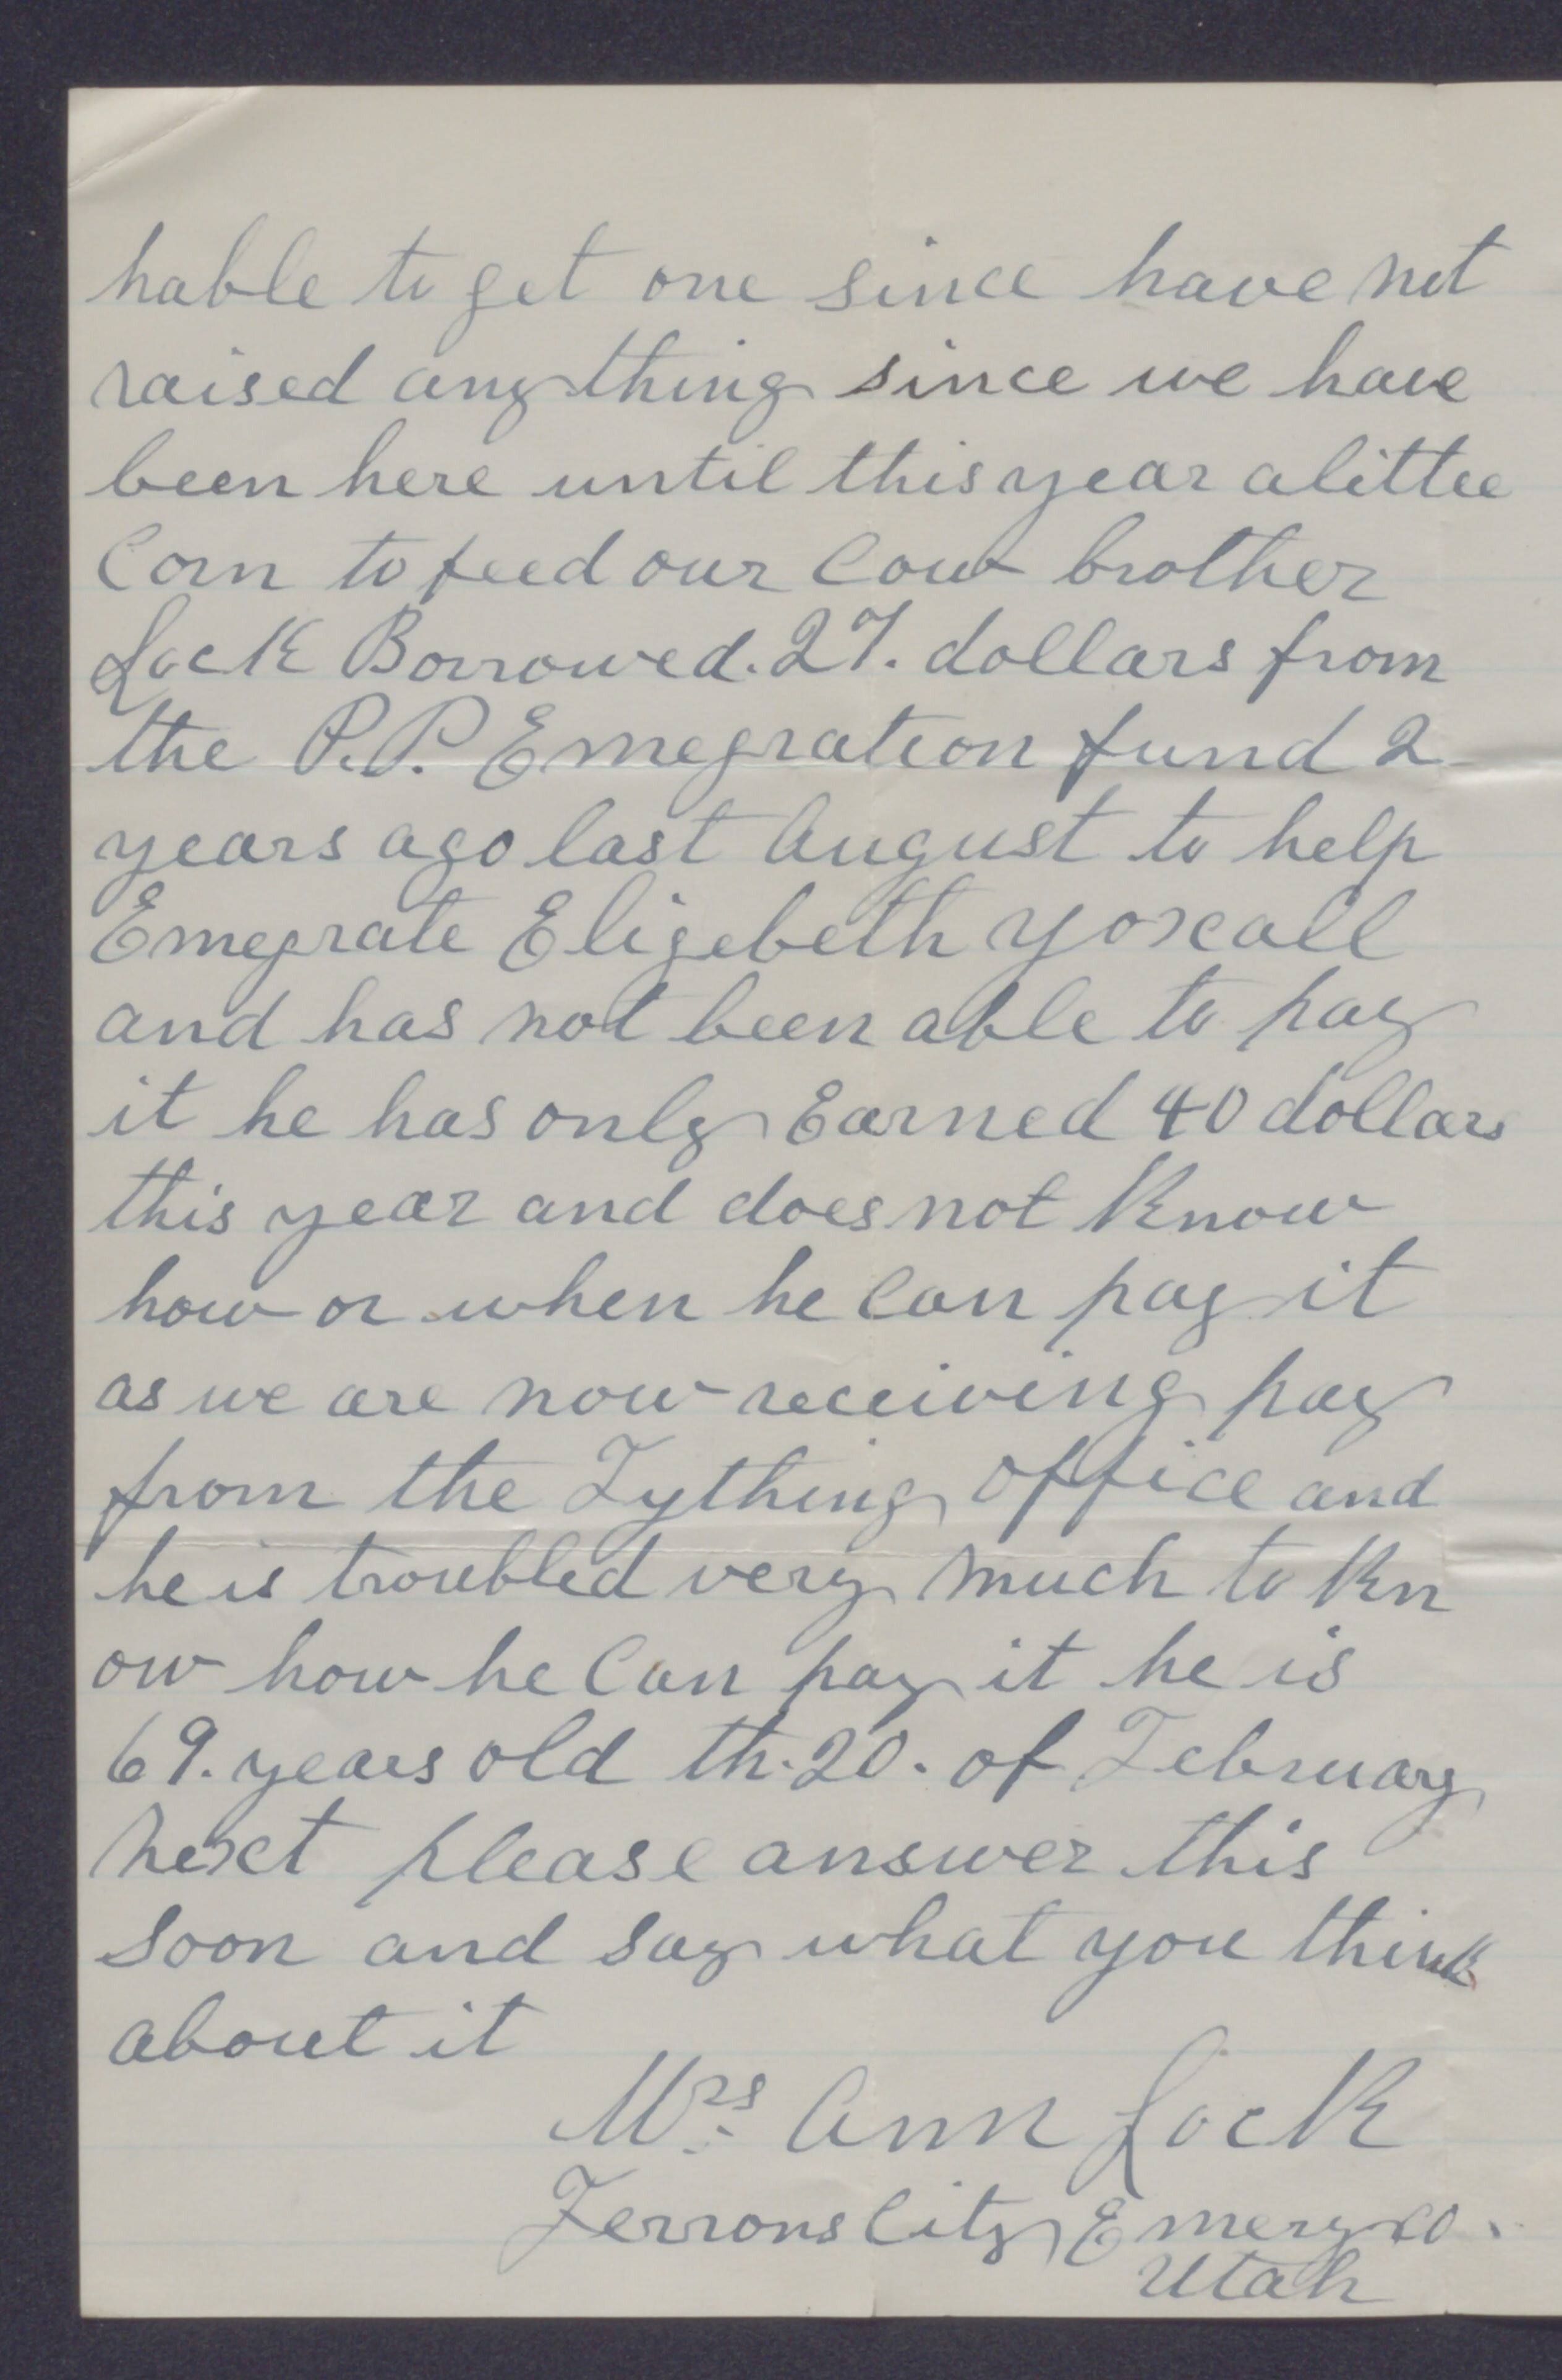 hable to get one since have not
raised anything since we have
been here until this year a littee
Corn to feed our Cow brother
Lock Borrowed. 27. dollars from
the P.P. Emegration fund 2
years ago last August to help
Emegrate Elizebeth yoxall
and has not been able to pay
it he has only Earned 40 dollars
this year and does not Know
how or when he Can pay it
as we are now receiving pay
from the Tything office and
he is troubled very much to Kn
ow how he Can pay it he is
69. years old th. 20. of February
next please answer this
soon and say what you think
about it
Mrs Ann Lock
Ferrons City Emery co.
Utah